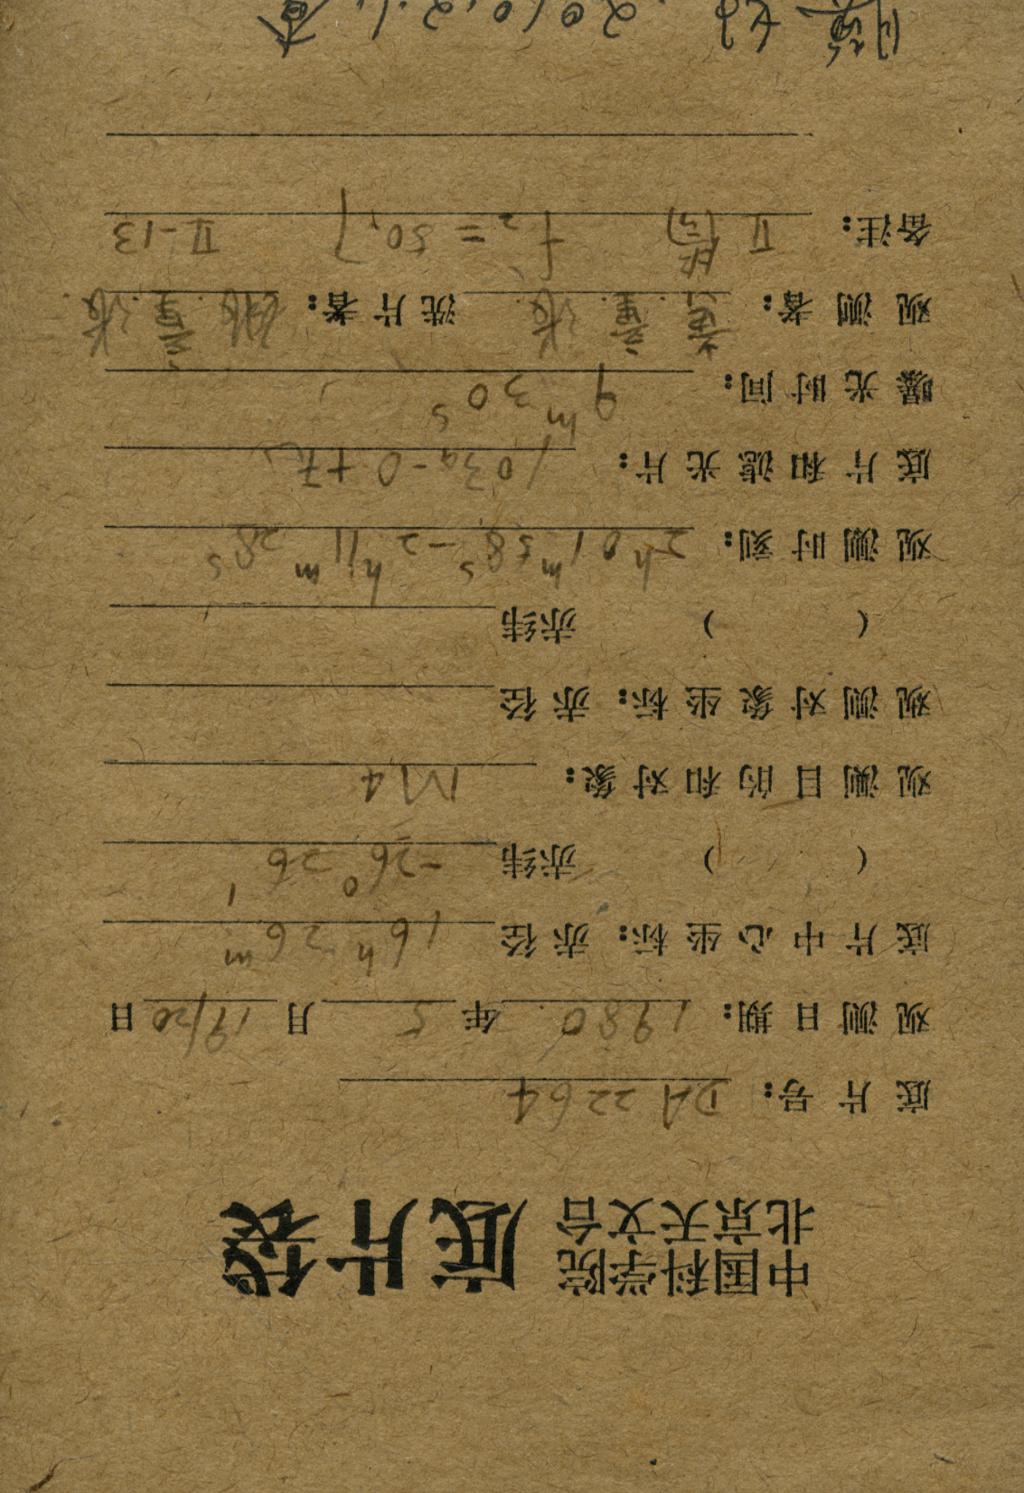 中国科学院
北京天文台
底片袋
底片号: DA 2264
观测日期: 1980 年 5 月 19/20 日
底片中心坐标: 赤径 16h 26m
( ) 赤纬 -26° 26'
观测目的和对象: M4
观测对象坐标: 赤径
( ) 赤纬
观测时刻: 2h 01m 58s - 2h 11m 28s
底片和滤光片: 103a-O +
曝光时间: 9m 30s
观测者: 黄 童 张 洗片者: 姚 童 张
备注: II f2 = 50.7 II-13
2010.2.1. 查